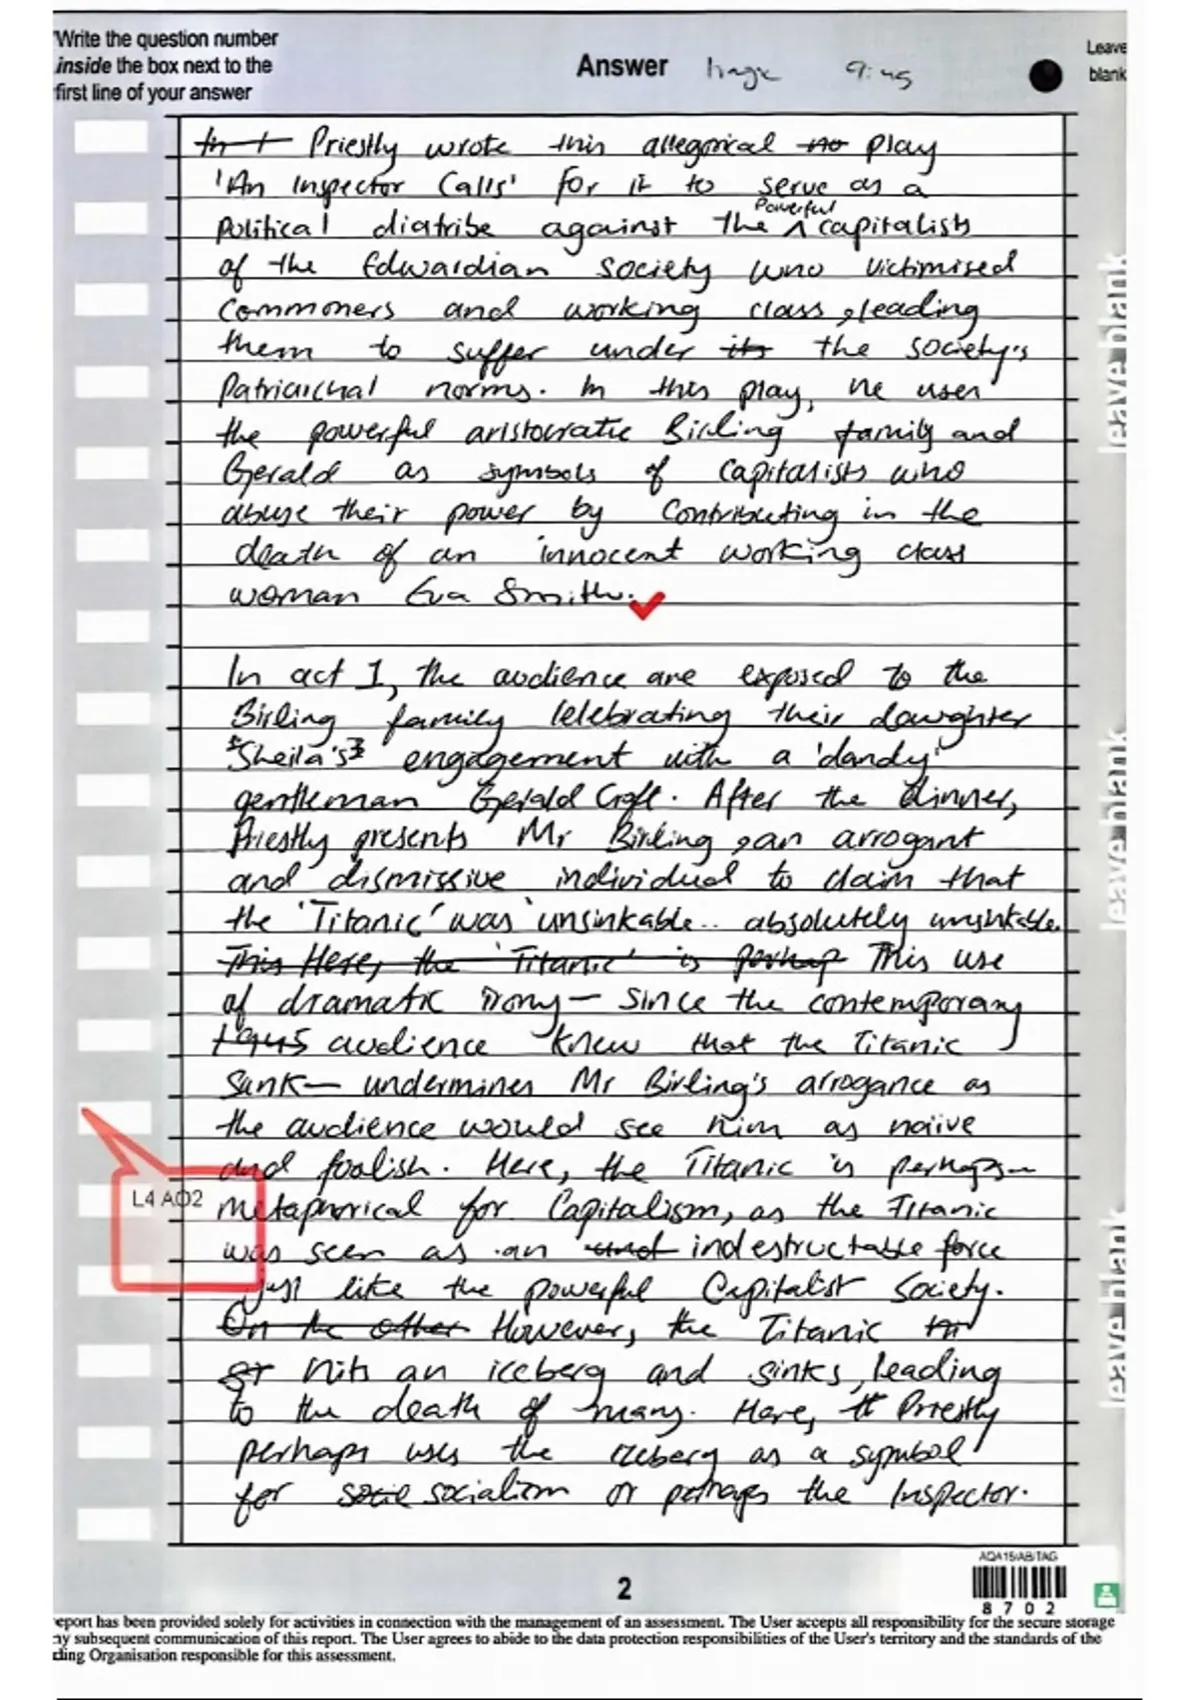 Write the question number
inside the box next to the
first line of your answer
Answer
9:45
Leave
blank
Priestly wrote this allegorical play
'An Inspector Calls' for it to serve as a
Powerful
Political diatribe against the ^ capitalists
of the Edwardian society who victimised
Commoners and working class, leading
them to suffer under its the society's
Patriarchal norms. In this play, he uses
the powerful aristocratic Birling family and
Gerald as symbols of Capitalists who
abuse their power by Contributing in the
death of an innocent working class
woman Eva Smith.
In act 1, the audience are exposed to the
Birling family celebrating their daughter
Sheila's engagement with a 'dandy'
gentleman Gerald Croft. After the dinner,
Priestly presents Mr Birling, an arrogant
and dismissive individual to claim that
the 'Titanic' was 'unsinkable.. absolutely unsinkable.
This Here, the 'Titanic' is perhap This use
of dramatic irony- since the contemporary
1945 audience knew that the Titanic
Sank- undermines Mr Birling's arrogance as
the audience would see him as naiive
and foolish. Here, the Titanic is perhaps
L4 AO2
metaphorical for Capitalism, as the Titanic
was seen as an indestructable force
just like the powerful Capitalist Society.
On the other However, the Titanic
hits an iceberg and sinks, leading
to the death of many. Here, Priestly
perhaps uses the iceberg as a symbol
for socialism or perhaps the Inspector.
leave blank
leave blank
leave blank
AQA15/AB/TAG
2
8 7 0 2
eport has been provided solely for activities in connection with the management of an assessment. The User accepts all responsibility for the secure storage
ny subsequent communication of this report. The User agrees to abide to the data protection responsibilities of the User's territory and the standards of the
ding Organisation responsible for this assessment.